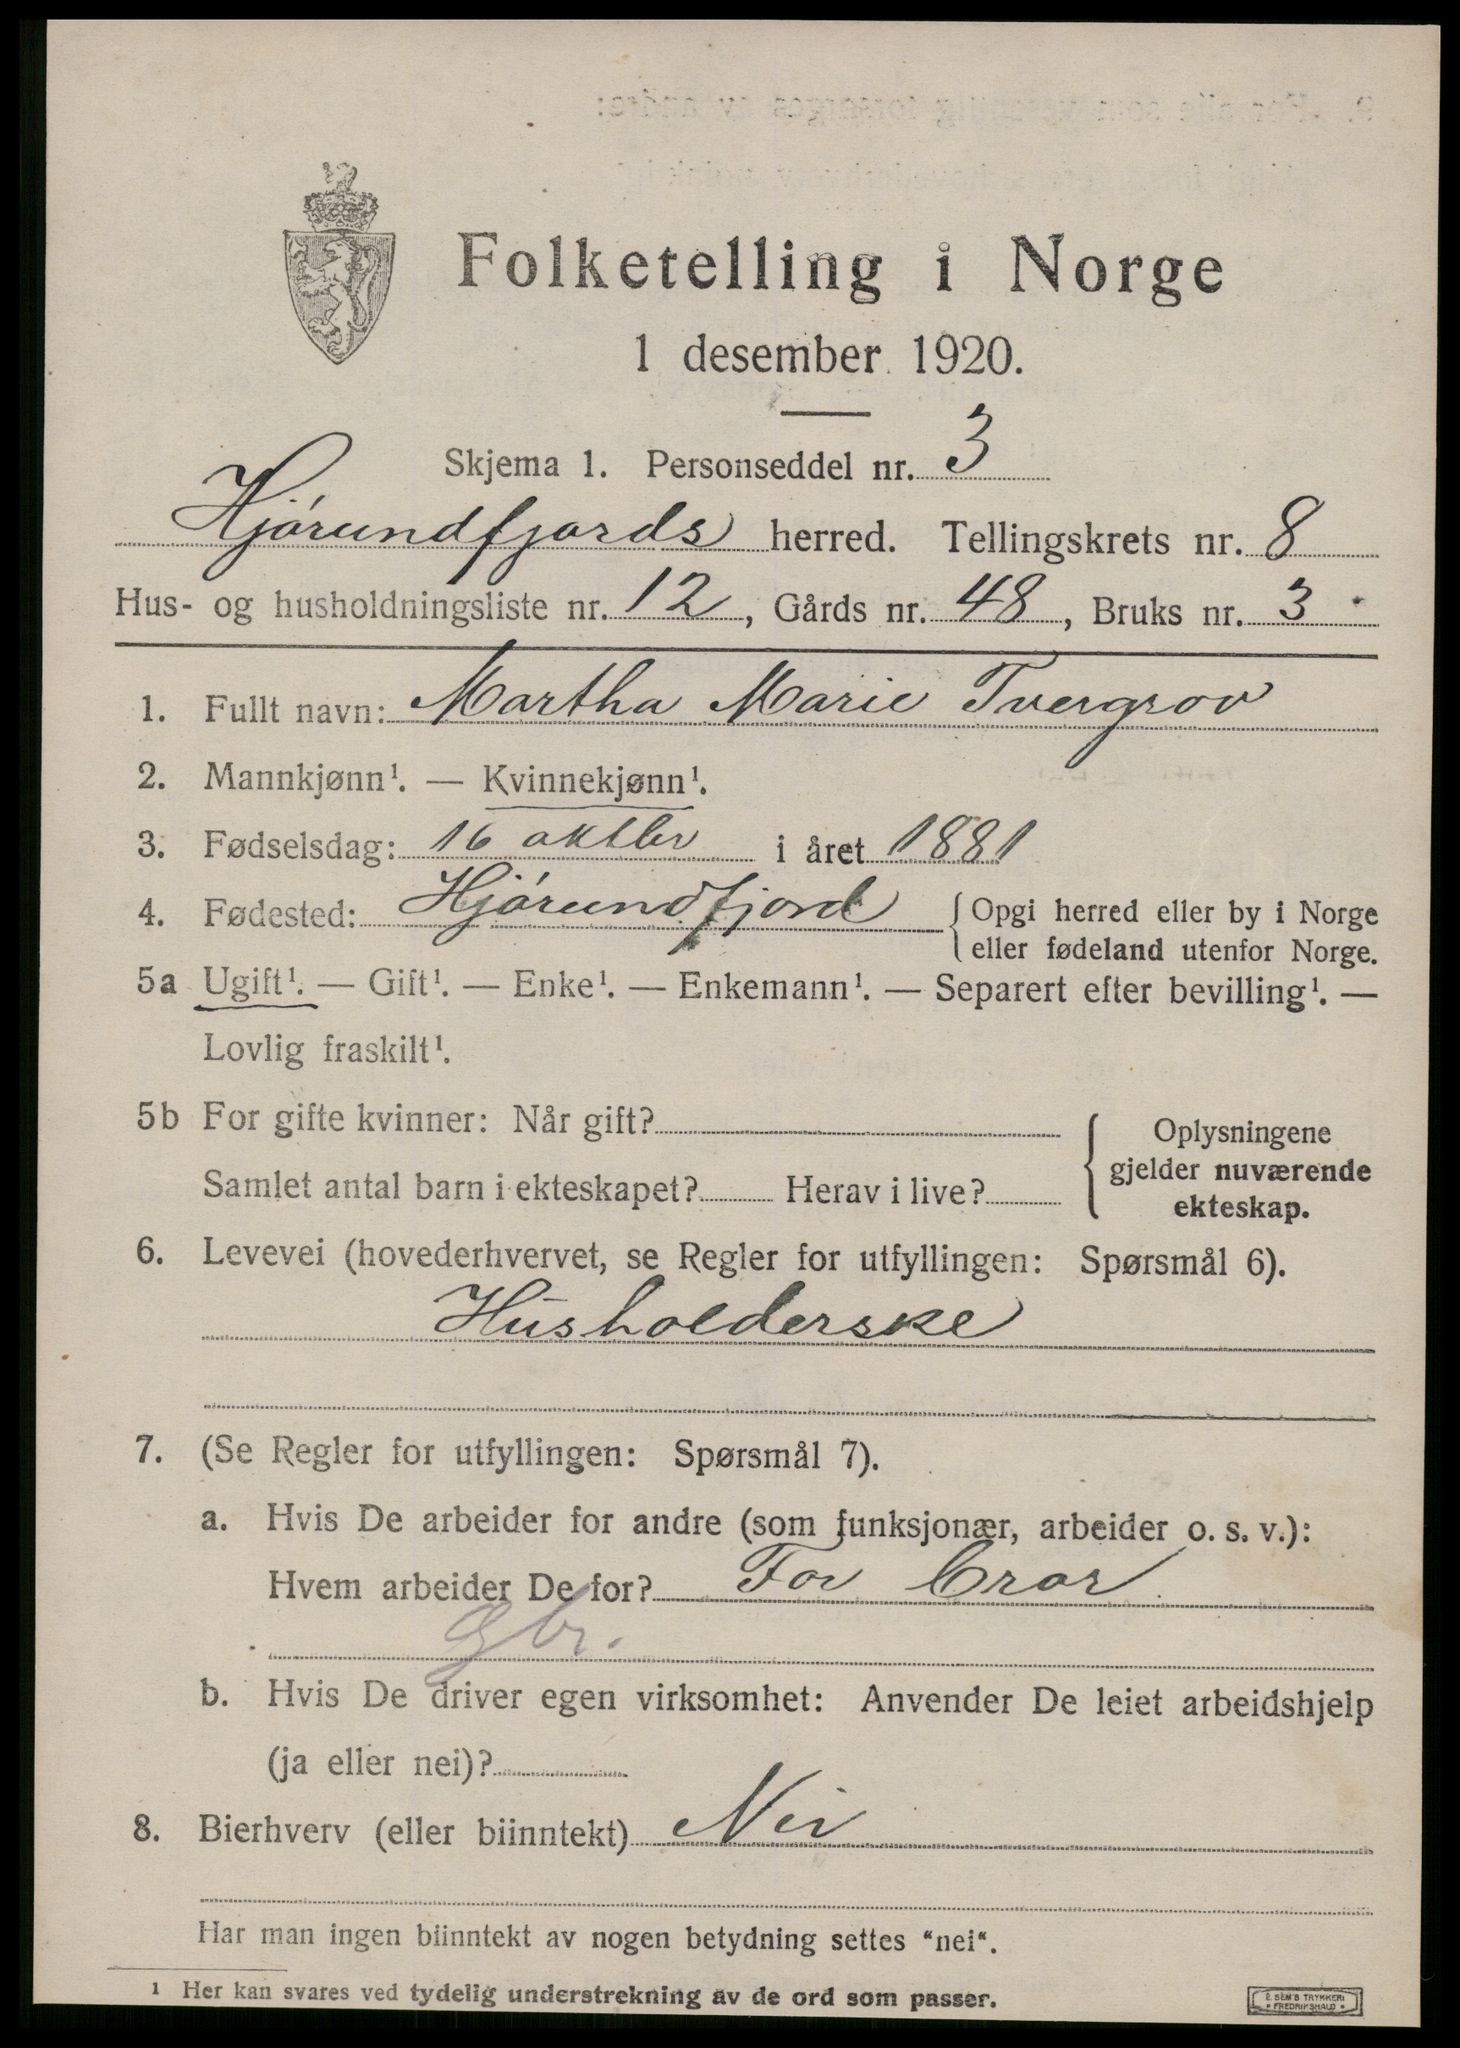 Folketelling i Norge
1 desember 1920.
Skjema 1. Personseddel nr. 3
Hjørundfjords herred. Tellingskrets nr. 8
Hus- og husholdningsliste nr. 12, Gårds nr. 48, Bruks nr. 3
1. Fullt navn: Martha Marie Tvergrov
2. Mannkjønn¹. — Kvinnekjønn¹.
3. Fødselsdag: 16 oktbr i året 1881
4. Fødested: Hjørundfjord { Opgi herred eller by i Norge
eller fødeland utenfor Norge.
5a Ugift¹. — Gift¹. — Enke¹. — Enkemann¹. — Separert efter bevilling¹. —
Lovlig fraskilt¹.
5b For gifte kvinner: Når gift?
Samlet antal barn i ekteskapet? Herav i live?
Oplysningene
gjelder nuværende
ekteskap.
6. Levevei (hovederhvervet, se Regler for utfyllingen: Spørsmål 6).
Husholderske
7. (Se Regler for utfyllingen: Spørsmål 7).
a. Hvis De arbeider for andre (som funksjonær, arbeider o. s. v.):
Hvem arbeider De for? For
Gbr.
b. Hvis De driver egen virksomhet: Anvender De leiet arbeidshjelp
(ja eller nei)?
8. Bierhverv (eller biinntekt) Nei
Har man ingen biinntekt av nogen betydning settes "nei".
¹ Her kan svares ved tydelig understrekning av de ord som passer.
E. SEM'S TRYKKERI
FREDRIKSHALD